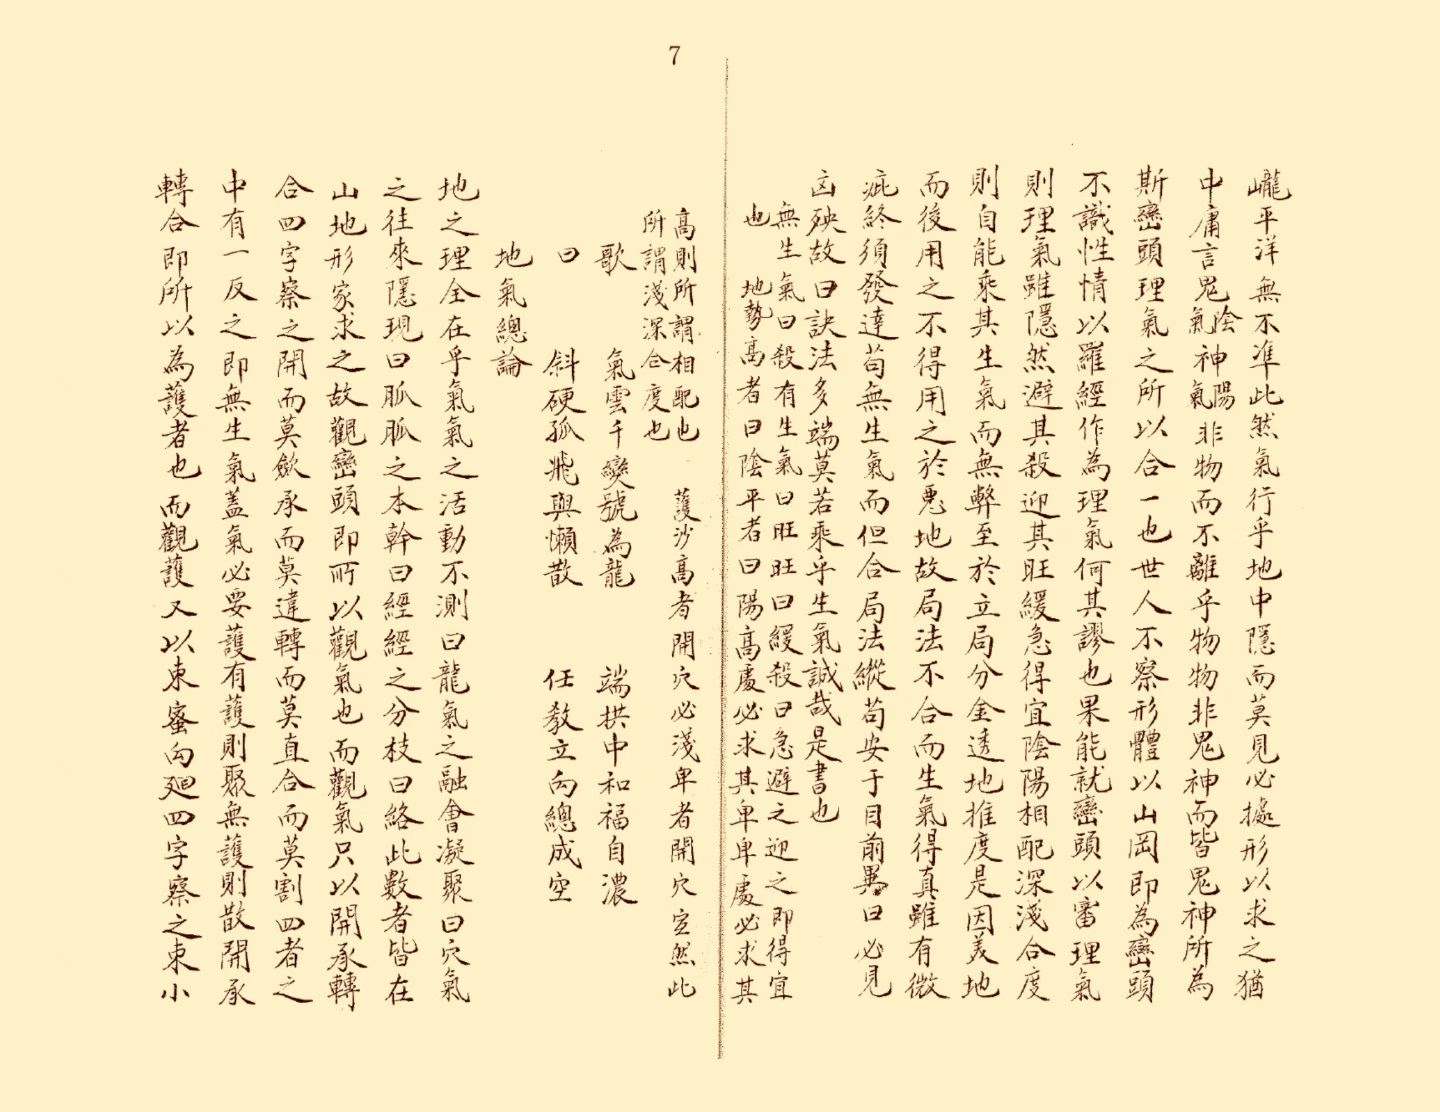 7
巄平洋無不準此然氣行乎地中隱而莫見必據形以求之猶
中庸言鬼陰氣神陽氣非物而不離乎物物非鬼神而皆鬼神所為
斯巒頭理氣之所以合一也世人不察形體以山岡即為巒頭
不識性情以羅經作為理氣何其謬也果能就巒頭以審理氣
則理氣雖隱然避其殺迎其旺緩急得宜陰陽相配深淺合度
則自能乘其生氣而無弊至於立局分金透地推度是因美地
而後用之不得用之於惡地故局法不合而生氣得真雖有微
疵終須發達苟無生氣而但合局法縱苟安于目前異日必見
凶殃故曰訣法多端莫若乘乎生氣誠哉是書也
無生氣曰殺有生氣曰旺旺曰緩殺曰急避之迎之即得宜
也 地勢高者曰陰平者曰陽高處必求其卑卑處必求其
高則所謂相配也 護沙高者開穴必淺卑者開穴宜然此
所謂淺深合度也
歌 氣雲千變號為龍 端拱中和福自濃
曰 斜硬孤飛與懶散 任教立向總成空
地氣總論
地之理全在乎氣氣之活動不測曰龍氣之融會凝聚曰穴氣
之往來隱現曰脈脈之本幹曰經經之分枝曰絡此數者皆在
山地形家求之故觀巒頭即所以觀氣也而觀氣只以開承轉
合四字察之開而莫斂承而莫違轉而莫直合而莫割四者之
中有一反之即無生氣蓋氣必要護有護則聚無護則散開承
轉合即所以為護者也而觀護又以東蜜向廻四字察之東小